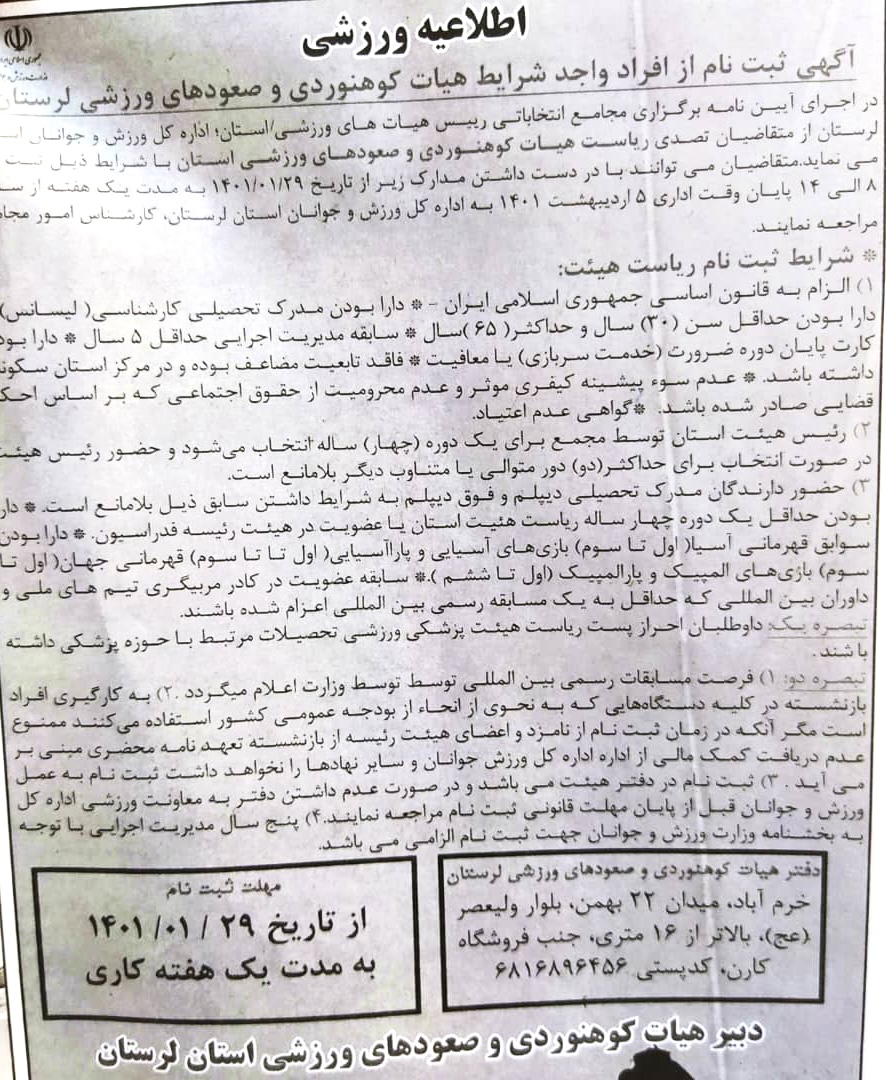 اطلاعیه ورزشی
جمهوری اسلامی ایران
آگهی ثبت نام از افراد واجد شرایط هیات کوهنوردی و صعودهای ورزشی لرستان
در اجرای آیین نامه برگزاری مجامع انتخاباتی رییس هیات های ورزشی/استان؛ اداره کل ورزش و جوانان
لرستان از متقاضیان تصدی ریاست هیات کوهنوردی و صعودهای ورزشی استان با شرایط ذیل ثبت
می نماید.متقاضیان می توانند با در دست داشتن مدارک زیر از تاریخ ۱۴۰۱/۰۱/۲۹ به مدت یک هفته از
۸ الی ۱۴ پایان وقت اداری ۵ اردیبهشت ۱۴۰۱ به اداره کل ورزش و جوانان استان لرستان، کارشناس امور
مراجعه نمایند.
* شرایط ثبت نام ریاست هیئت:
۱) الزام به قانون اساسی جمهوری اسلامی ایران - * دارا بودن مدرک تحصیلی کارشناسی( لیسانس)
دارا بودن حداقل سن (۳۰) سال و حداکثر( ۶۵ )سال * سابقه مدیریت اجرایی حداقل ۵ سال * دارا
کارت پایان دوره ضرورت (خدمت سربازی) یا معافیت * فاقد تابعیت مضاعف بوده و در مرکز استان
داشته باشد. * عدم سوء پیشینه کیفری موثر و عدم محرومیت از حقوق اجتماعی که بر اساس
قضایی صادر شده باشد. *گواهی عدم اعتیاد.
۲) رئیس هیئت استان توسط مجمع برای یک دوره (چهار) ساله انتخاب می‌شود و حضور رئیس هیئت
در صورت انتخاب برای حداکثر(دو) دور متوالی یا متناوب دیگر بلامانع است.
۳) حضور دارندگان مدرک تحصیلی دیپلم و فوق دیپلم به شرایط داشتن سابق ذیل بلامانع است. *
بودن حداقل یک دوره چهار ساله ریاست هئیت استان یا عضویت در هیئت رئیسه فدراسیون. * دارا بودن
سوابق قهرمانی آسیا( اول تا سوم) بازی‌های آسیایی و پاراآسیایی( اول تا تا سوم) قهرمانی جهان( اول تا
سوم) بازی‌های المپیک و پارالمپیک (اول تا ششم ).* سابقه عضویت در کادر مربیگری تیم های ملی و
داوران بین المللی که حداقل به یک مسابقه رسمی بین المللی اعزام شده باشند.
تبصره یک: داوطلبان احراز پست ریاست هیئت پزشکی ورزشی تحصیلات مرتبط با حوزه پزشکی داشته
باشند.
تبصره دو: ۱) فرصت مسابقات رسمی بین المللی توسط توسط وزارت اعلام میگردد .۲) به کارگیری افراد
بازنشسته در کلیه دستگاه‌هایی که به نحوی از انحاء از بودجه عمومی کشور استفاده می‌کنند ممنوع
است مگر آنکه در زمان ثبت نام از نامزد و اعضای هیئت رئیسه از بازنشسته تعهد نامه محضری مبنی بر
عدم دریافت کمک مالی از اداره اداره کل ورزش جوانان و سایر نهادها را نخواهد داشت ثبت نام به عمل
می آید . ۳) ثبت نام در دفتر هیئت می باشد و در صورت عدم داشتن دفتر به معاونت ورزشی اداره کل
ورزش و جوانان قبل از پایان مهلت قانونی ثبت نام مراجعه نمایند.۴) پنج سال مدیریت اجرایی با توجه
به بخشنامه وزارت ورزش و جوانان جهت ثبت نام الزامی می باشد.
دفتر هیات کوهنوردی و صعودهای ورزشی لرستان
خرم آباد، میدان ۲۲ بهمن، بلوار ولیعصر
(عج)، بالاتر از ۱۶ متری، جنب فروشگاه
کارن، کدپستی ۶۸۱۶۸۹۶۴۵۶
مهلت ثبت نام
از تاریخ ۲۹ / ۰۱ /۱۴۰۱
به مدت یک هفته کاری
دبیر هیات کوهنوردی و صعودهای ورزشی استان لرستان